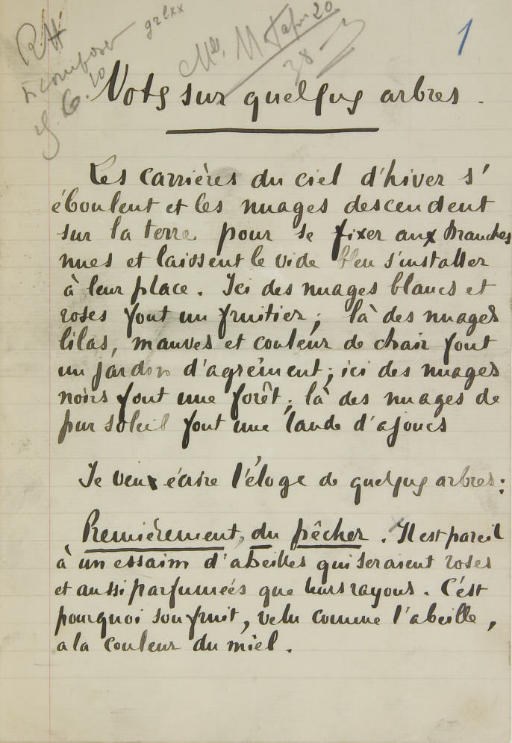 1
à composer
Notes sur quelques arbres.
Les carrières du ciel d'hiver s'
éboulent et les nuages descendent
sur la terre pour se fixer aux branches
nues et laissent le vide bleu s'installer
à leur place. Ici des nuages blancs et
roses font un fruitier; là des nuages
lilas, mauves et couleur de chair font
un jardin d'agrément; ici des nuages
noirs font une forêt; là des nuages de
pur soleil font une lande d'ajoncs
Je veux écrire l'éloge de quelques arbres:
Premièrement, du pêcher. Il est pareil
à un essaim d'abeilles qui seraient roses
et aussi parfumées que leurs rayons. C'est
pourquoi son fruit, velu comme l'abeille,
a la couleur du miel.